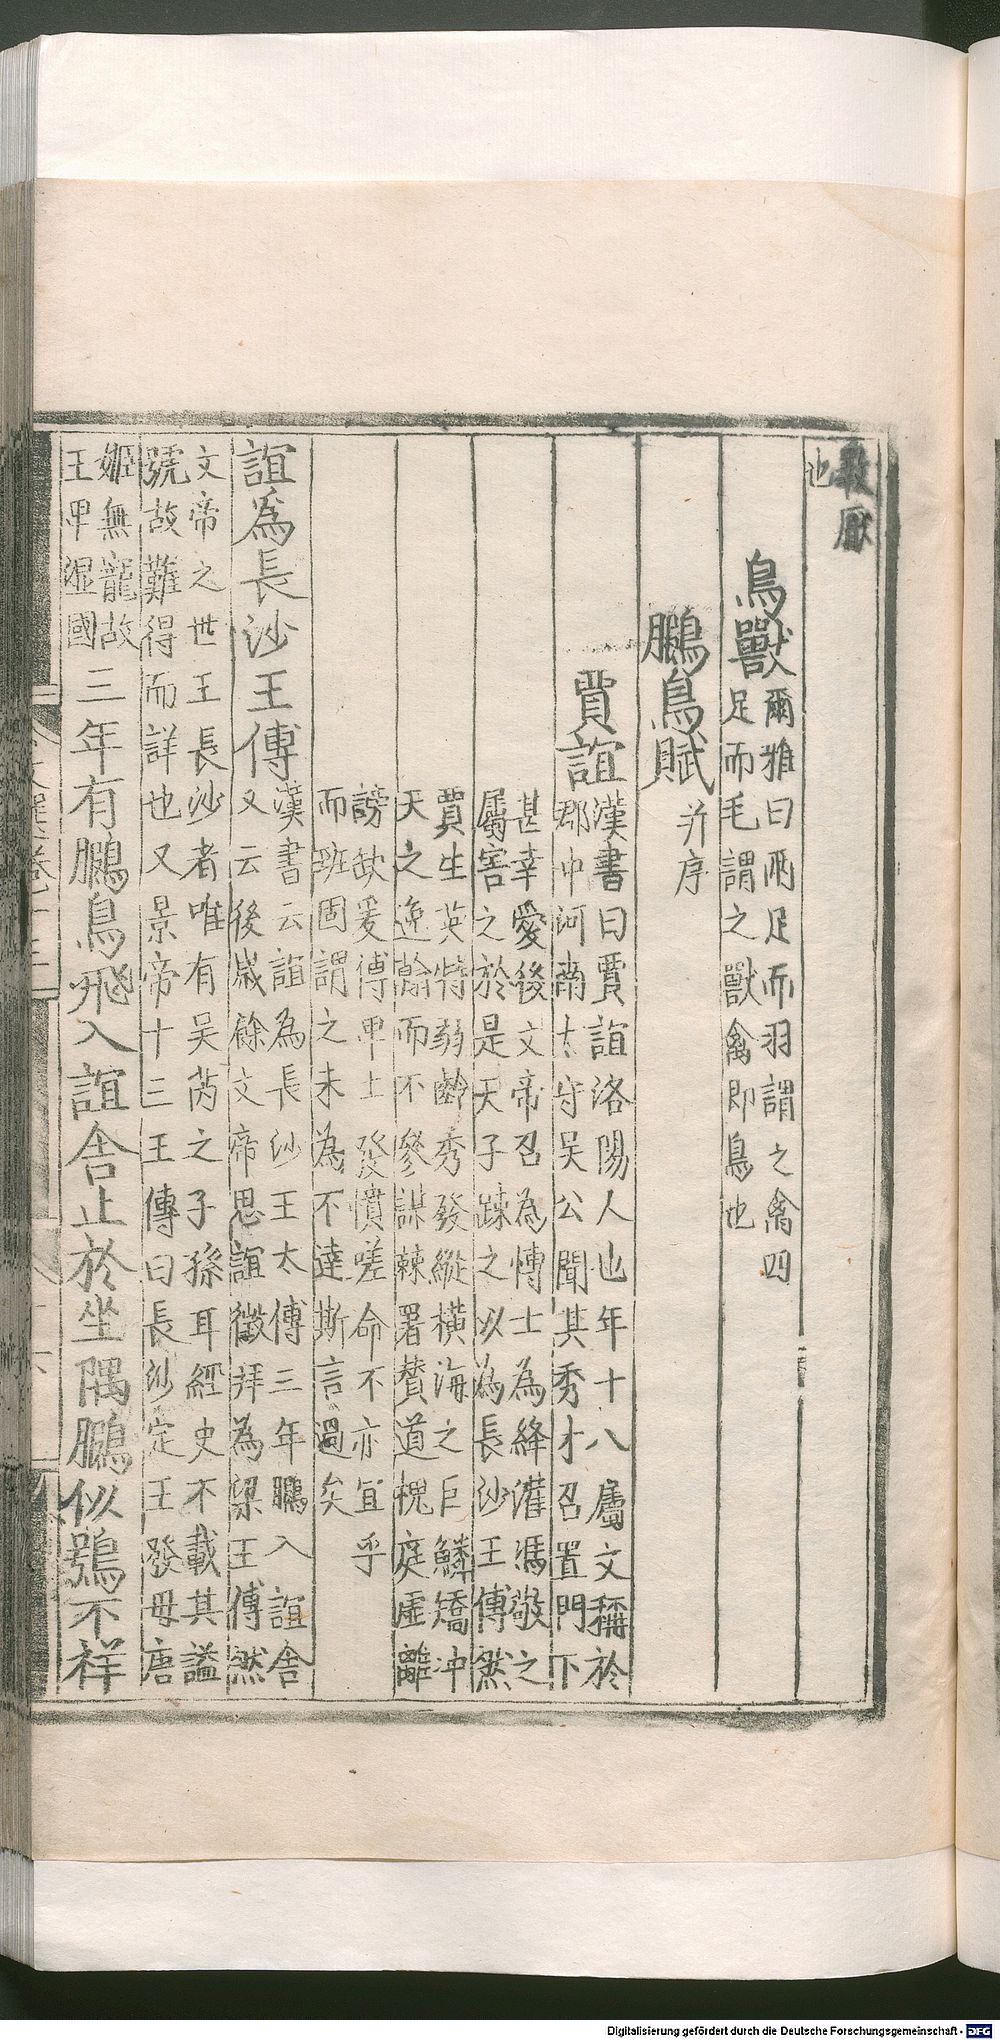 敢厭
也
鳥獸爾雅曰兩足而羽謂之禽四
足而毛謂之獸禽即鳥也
鵩鳥賦并序
賈誼漢書曰賈誼洛陽人也年十八屬文稱於
郡中河南太守吴公聞其秀才召置門下
甚幸愛後文帝召為博士為絳灌馮敬之
屬害之於是天子踈之以為長沙王傅然
賈生英特弱齡秀發縱橫海之巨鱗矯冲
天之逸翰而不參謀棘署賛道槐庭虚離
謗缺爰傅卑土發憤嗟命不亦宜乎
而班固謂之未為不達斯言過矣
誼為長沙王傅漢書云誼為長沙王太傅三年鵩入誼舍
又云後歲餘文帝思誼徵拜為梁王傅然
文帝之世王長沙者唯有吴芮之子孫耳經史不載其謚
號故難得而詳也又景帝十三王傳曰長沙定王發母唐
姬無寵故
王卑濕國
三年有鵩鳥飛入誼舍止於坐隅鵩似鴞不祥